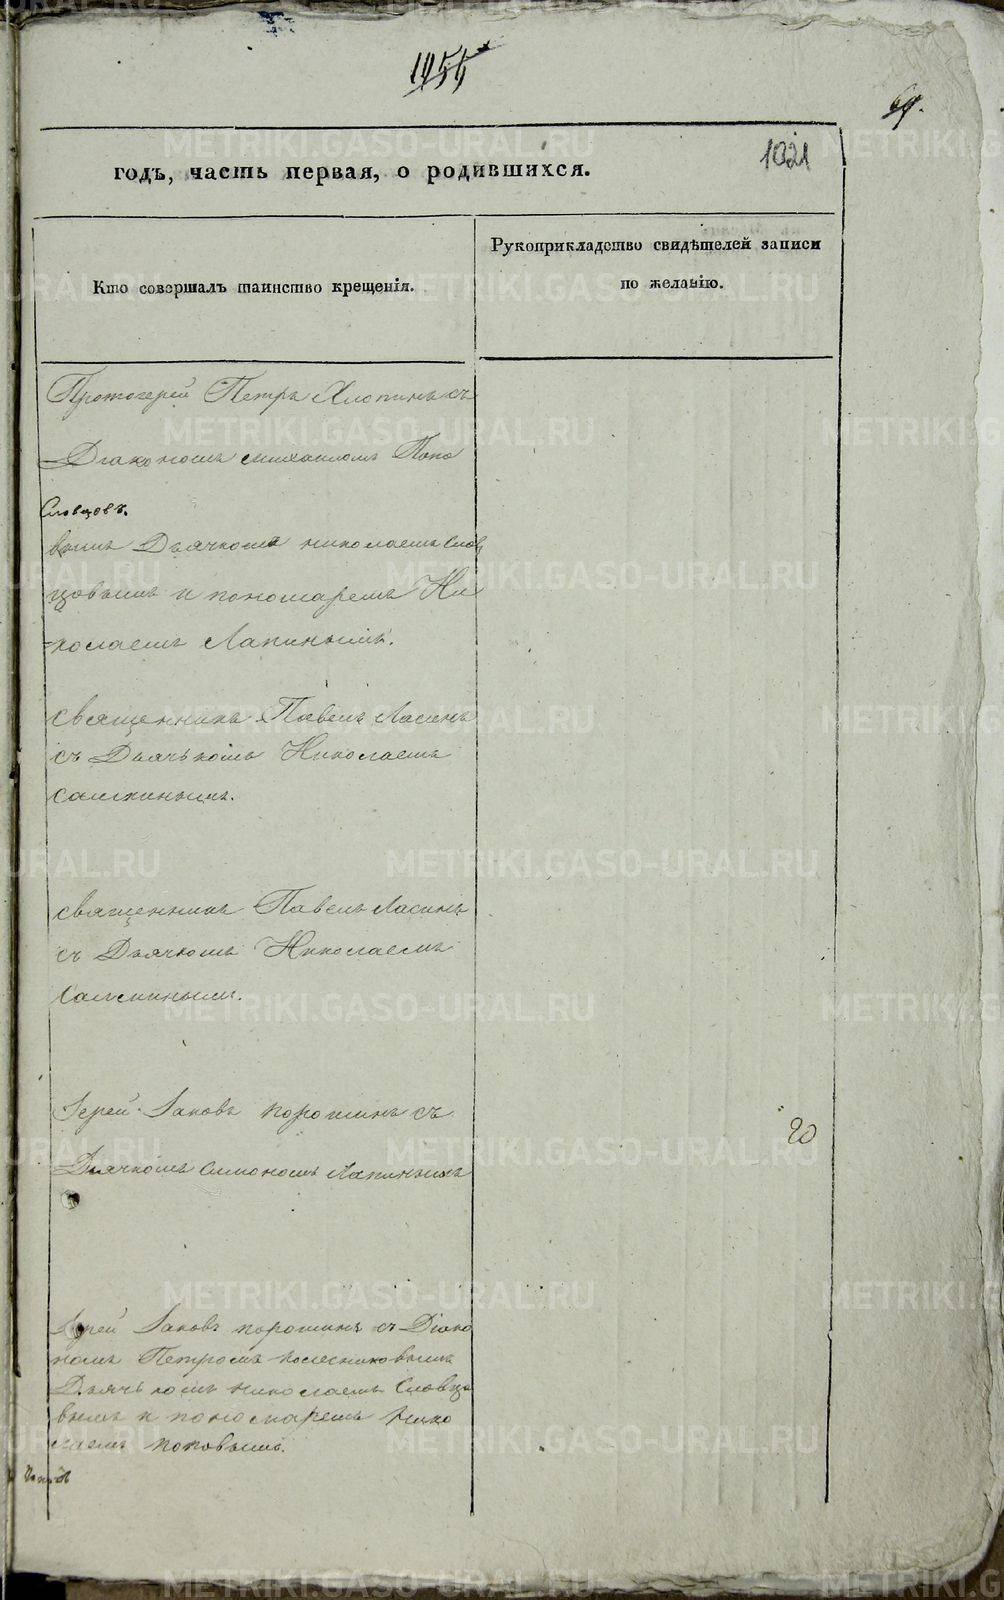 1021
годъ, часть первая, о родившихся.
Кто совершалъ таинство крещенія.
Рукоприкладство свидѣтелей записи
по желанію.
Протоіерей Петръ Хлопинъ съ
Діакономъ Михаиломъ Попо
Словцовъ.
вымъ Дьячкомъ Николаемъ Слов
цовымъ и пономаремъ Ни
колаемъ Лапинымъ.
Священникъ Павелъ Ласинъ
съ Дьячькомъ Николаемъ
Самкинымъ.
Священникъ Павелъ Ласинъ
съ Дьячкомъ Николаемъ
Самкинымъ.
Іерей Іаковъ Порошинъ съ
Дьячкомъ Симономъ Лапинымъ
20
Іерей Іаковъ Порошинъ съ Діако
номъ Петромъ Колесниковымъ
Дьячькомъ Николаемъ Словцо
вымъ и пономаремъ Нико
лаемъ Поповымъ.
METRIKI.GASO-URAL.RU